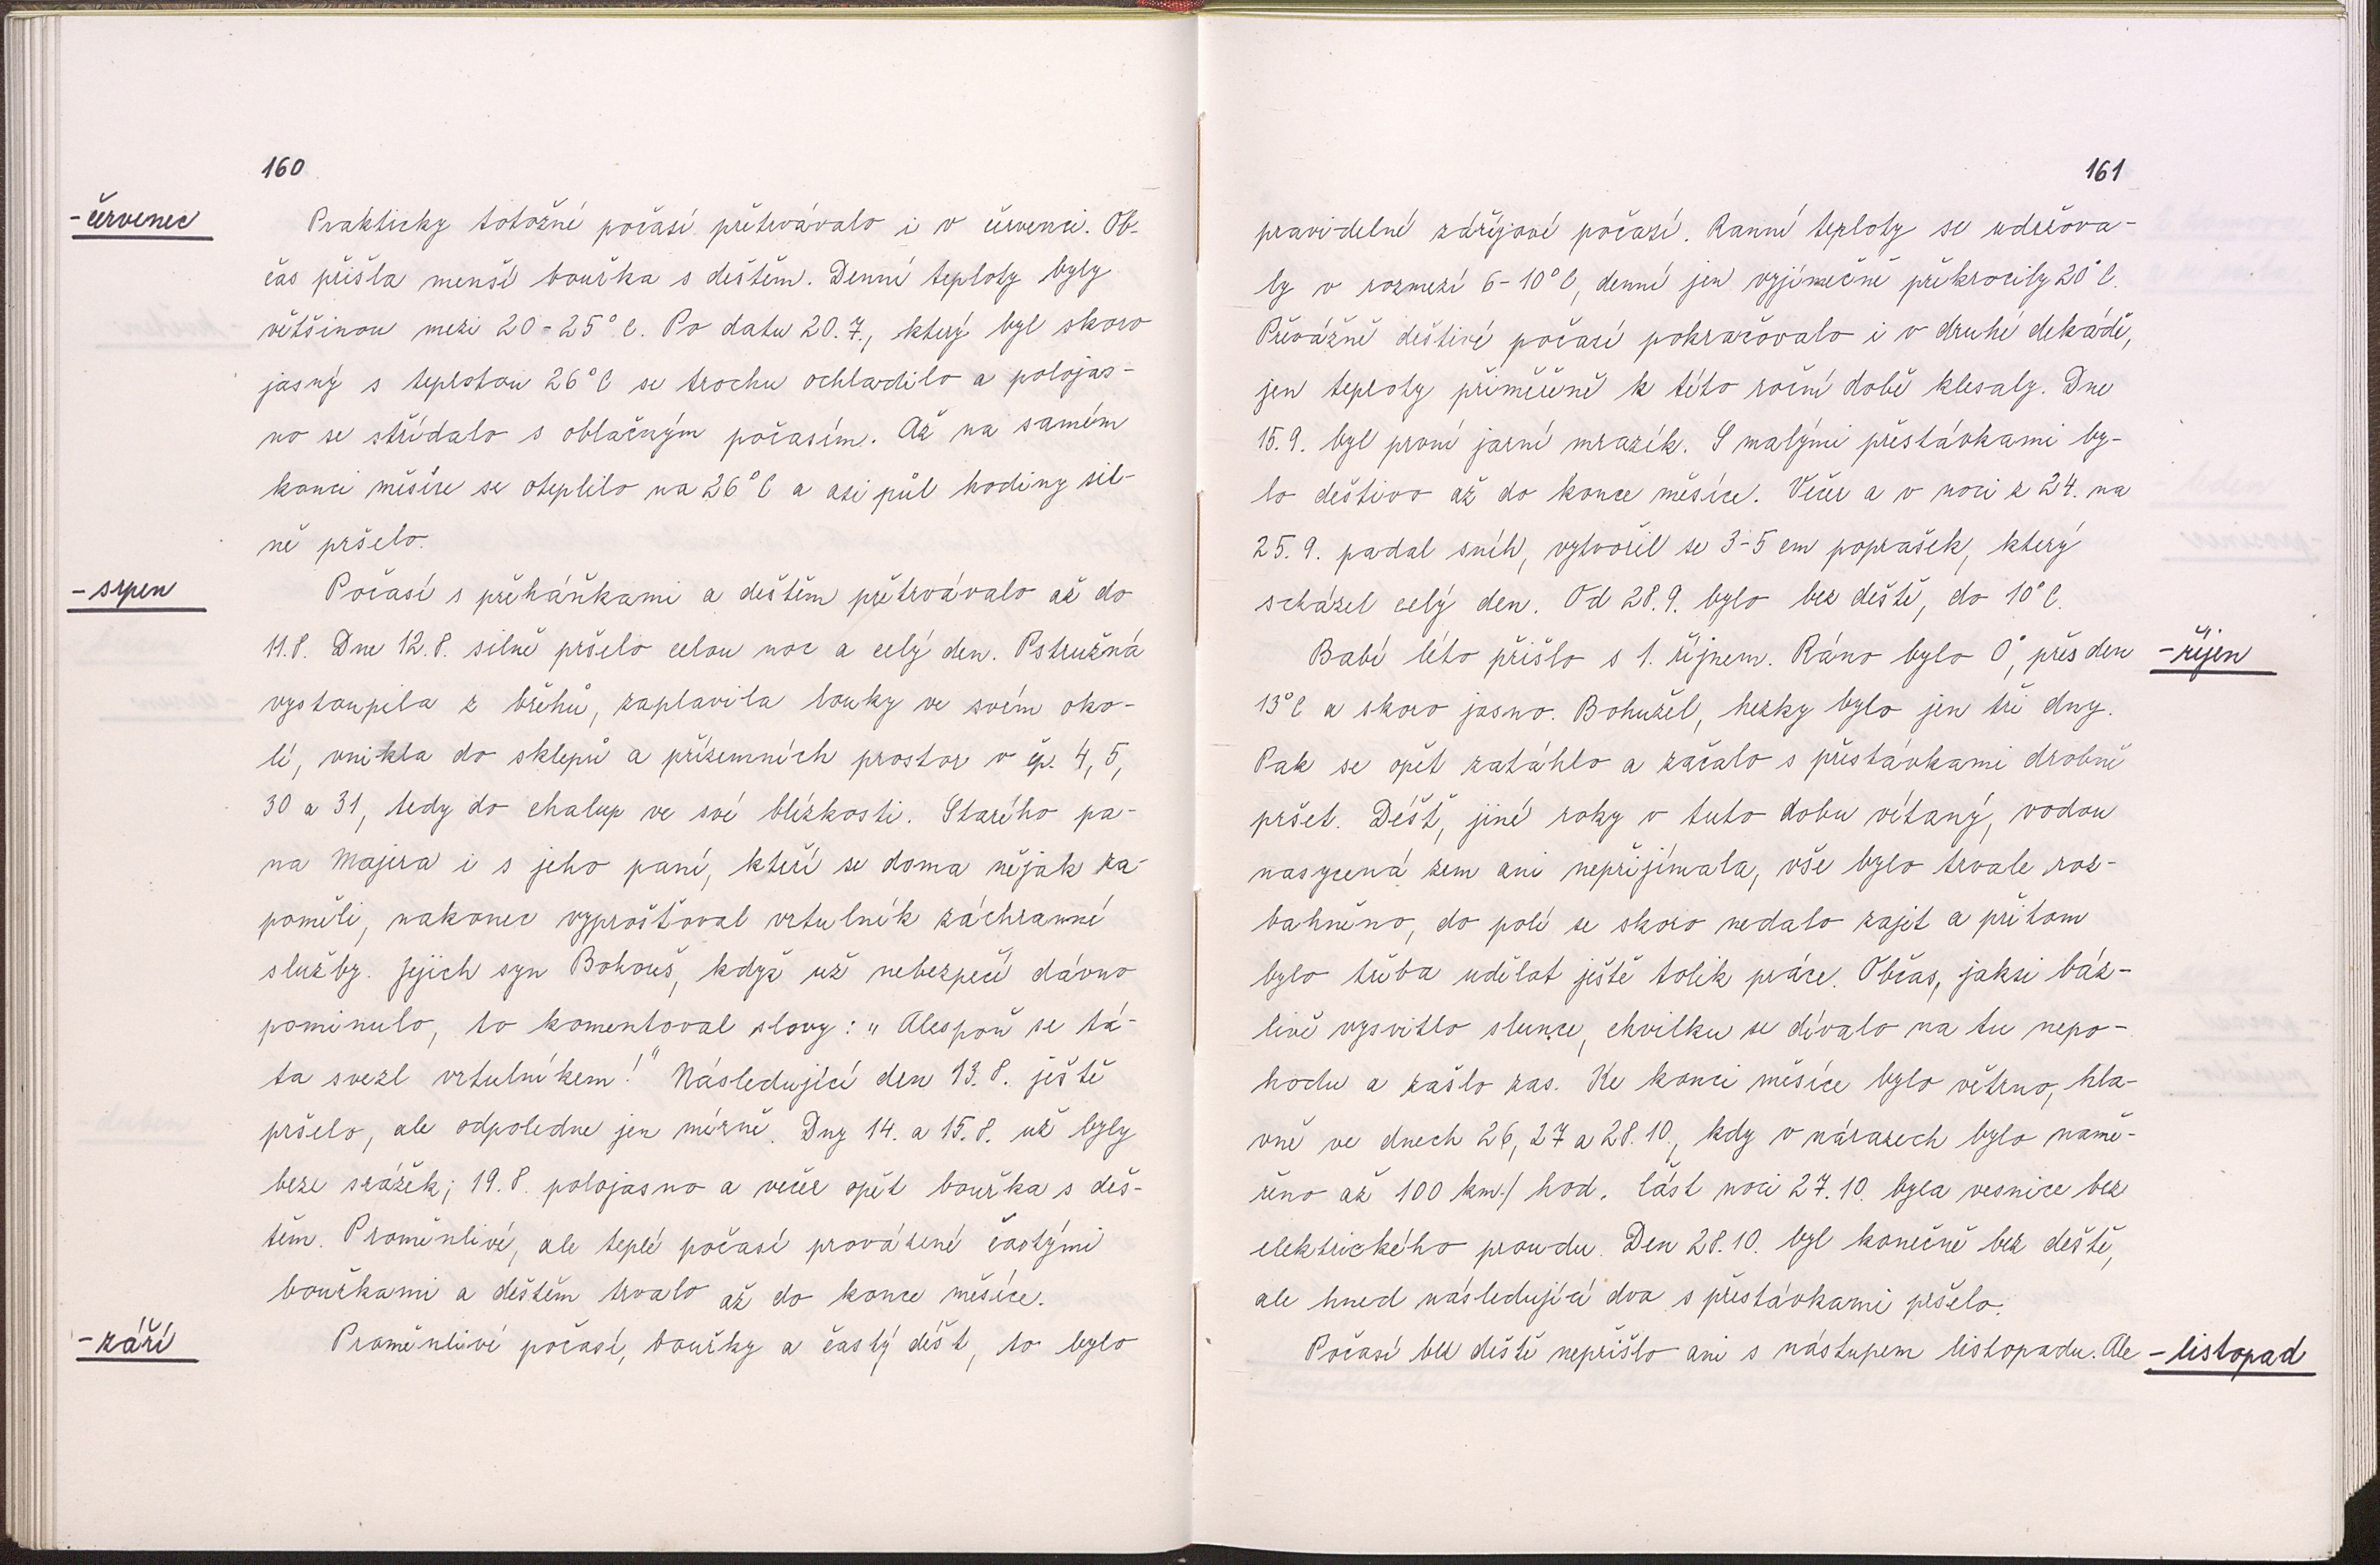 160
- červenec
Prakticky totožné počasí přetrvávalo i v červenci. Ob-
čas přišla menší bouřka s deštěm. Denní teploty byly
většinou mezi 20 - 25° C. Po datu 20. 7., který byl skoro
jasný s teplotou 26° C se trochu ochladilo a polojas-
no se střídalo s oblačným počasím. Až na samém
konci měsíce se oteplilo na 26° C a asi půl hodiny sil-
ně pršelo.
- srpen
Počasí s přeháňkami a deštěm přetrvávalo až do
11. 8. Dne 12. 8. silně pršelo celou noc a celý den. Pstružná
vystoupila z břehů, zaplavila louky ve svém oko-
lí, vnikla do sklepů a přízemních prostor v čp. 4, 5,
30 a 31, tedy do chalup ve své blízkosti. Starého pa-
na Majera i s jeho paní, kteří se doma nějak za-
poměli, nakonec vyprošťoval vrtulník záchranné
služby. Jejich syn Bohouš, když už nebezpečí dávno
pominulo, to komentoval slovy: „Alespoň se tá-
ta svezl vrtulníkem!" Následující den 13. 8. ještě
pršelo, ale odpoledne jen mírně. Dny 14. a 15. 8. už byly
beze srážek; 19. 8. polojasno a večer opět bouřka s deš-
těm. Proměnlivé, ale teplé počasí provázené častými
bouřkami a deštěm trvalo až do konce měsíce.
- září
Proměnlivé počasí, bouřky a častý déšť, to bylo
161
pravidelné zářijové počasí. Ranní teploty se udržova-
ly v rozmezí 6 - 10° C, denní jen vyjímečně překročily 20° C.
Převážně deštivé počasí pokračovalo i v druhé dekádě,
jen teploty přiměřeně k této roční době klesaly. Dne
15. 9. byl první jarní mrazík. S malými přestávkami by-
lo deštivo až do konce měsíce. Večer a v noci z 24. na
25. 9. padal sníh, vytvořil se 3-5 cm poprašek, který
scházel celý den. Od 28. 9. bylo bez deště, do 10° C.
Babí léto přišlo s 1. říjnem. Ráno bylo 0°, přes den
- říjen
13° C a skoro jasno. Bohužel, hezky bylo jen tři dny.
Pak se opět zatáhlo a začalo s přestávkami drobně
pršet. Déšť, jiné roky v tuto dobu vítaný, vodou
nasycená zem ani nepřijímala, vše bylo trvale roz-
bahněno, do polí se skoro nedalo zajet a přitom
bylo třeba udělat ještě tolik práce. Občas, jaksi báz-
livě vysvitlo slunce, chvilku se dívalo na tu nepo-
hodu a zašlo zas. Ke konci měsíce bylo větrno, hla-
vně ve dnech 26, 27 a 28. 10., kdy v nárazech bylo namě-
řeno až 100 km/ hod. Část noci 27. 10. byla vesnice bez
elektrického proudu. Den 28. 10. byl konečně bez deště,
ale hned následující dva s přestávkami pršelo.
Počasí bez deště nepřišlo ani s nástupem listopadu. Ale
- listopad